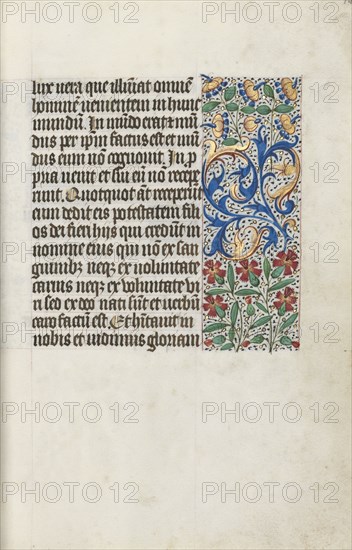 lux vera que illuīat omnē
hominē venientem in hunc
mundū. In mūdo erat⁊ mū
dus per ip̄m factus est et mū
dus eum nō cognovit. In p
pria venit et sui eū nō recepe
runt. Quotquot āt receperūt
eum dedit eis potestatem fili
os dei fieri hijs qui credūt in
nomine eius qui nō ex san
guinibz neqz ex voluntate
carnis neqz ex voluntate vi
ri sed ex deo nati sūt et verbū
caro factū est. Et hītavit in
nobis et vidimus gloriam
PHOTO 12